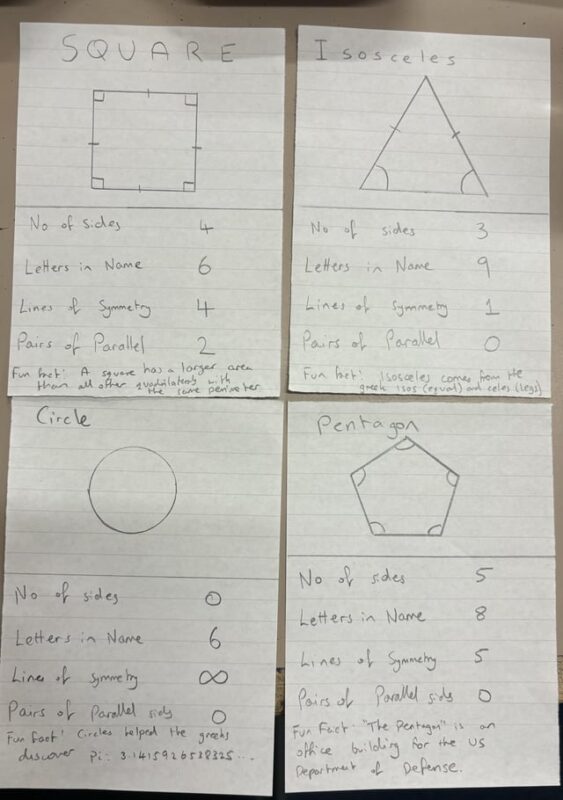 SQUARE
No of sides 4
Letters in Name 6
Lines of Symmetry 4
Pairs of Parallel 2
Fun fact: A square has a larger area
than all other quadrilaterals with
the same perimeter.
Isosceles
No of sides 3
Letters in Name 9
Lines of Symmetry 1
Pairs of Parallel 0
Fun fact: Isosceles comes from the
greek isos (equal) and celes (legs)
Circle
No of sides 0
Letters in Name 6
Lines of Symmetry ∞
Pairs of Parallel sids 0
Fun fact: Circles helped the greeks
discover Pi: 3.1415926528325...
Pentagon
No of sides 5
Letters in Name 8
Lines of Symmetry 5
Pairs of Parallel sids 0
Fun Fact: "The Pentagon" is an
office building for the US
Department of Defense.